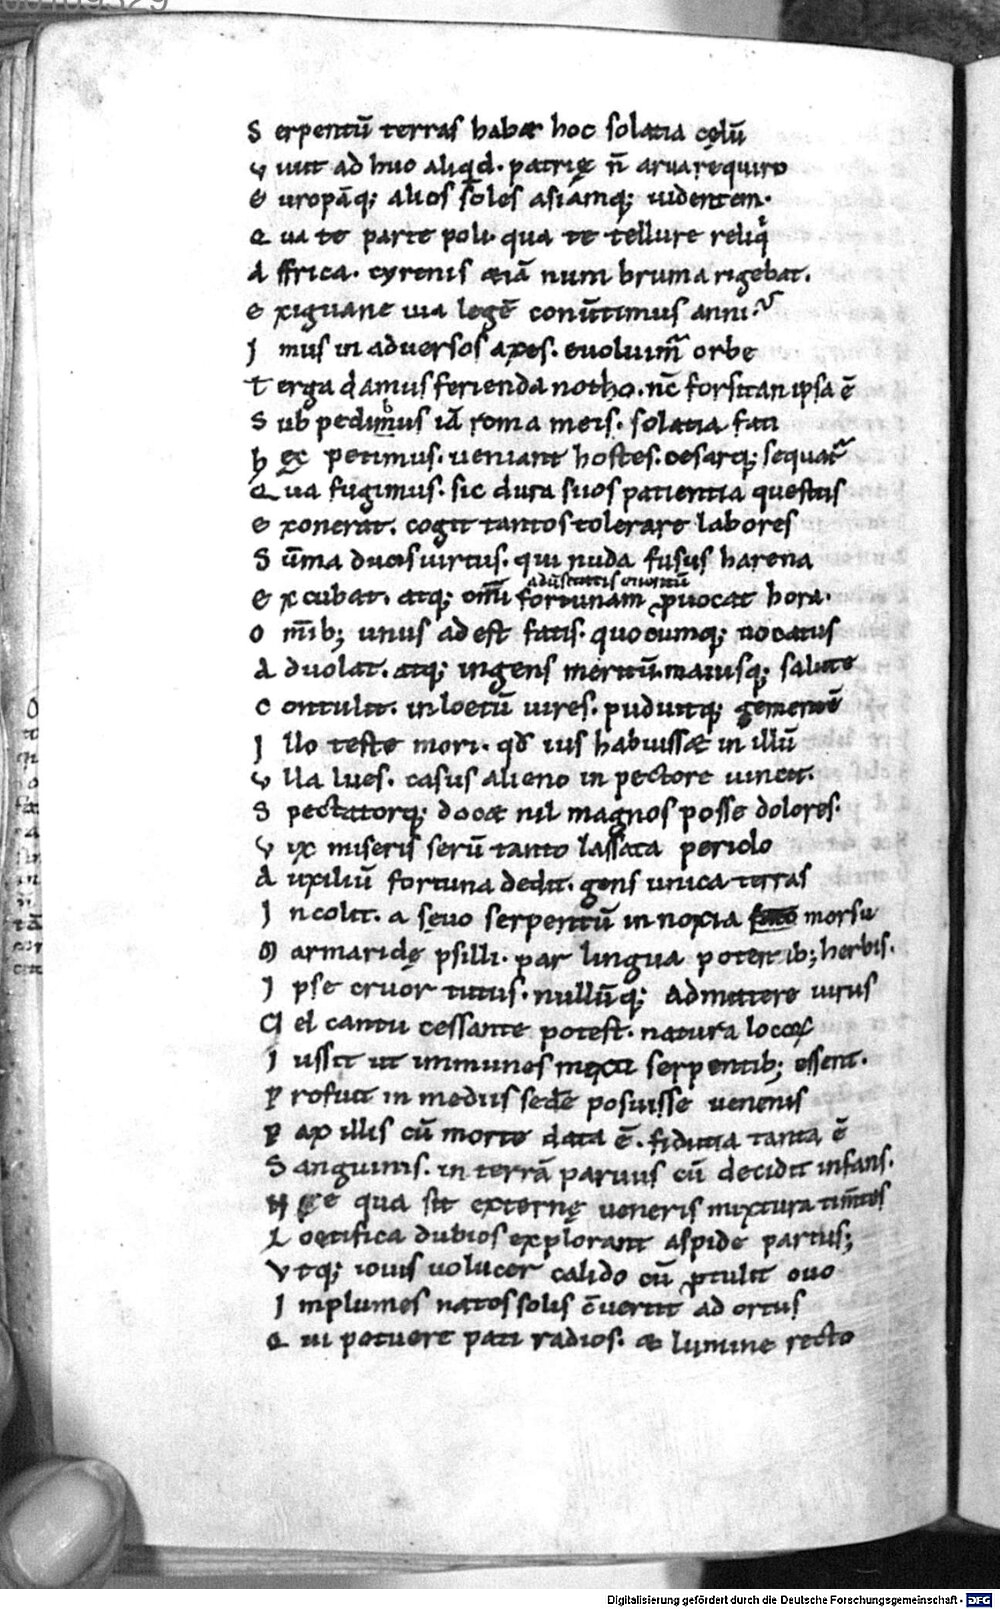 S erpentū terras habet hoc solatia cęlū
V iuit ad huc aliqd. patrię n̄ arva requiro
E uropāq; alios soles asiamq; uidentem.
Q ua te parte poli. qua te tellure reliqͥ
A ffrica. cyrenis etiā num bruma rigebat.
E xiguane uia legē conūtimus anni.
I mus in adversos axes. euoluimᷓ orbe
T erga damus ferienda notho. nc̄ forsitan ipsa ē
S ub pedibus iā roma meis. solatia fati
H ęc petimus. veniant hostes. cesarq; sequatᷓ
Q ua fugimus. sic dura suos patientia questus
E xonerat. cogit tantos tolerare labores
S ūma ducis virtus. qui nuda fusus harena
E xcubat. atq; omī fortunam ꝓuocat hora.
O mīb; unus adest fatis. quocumq; uocatus
A duolat. atq; ingens meritū maiusq; salute
C ontulit. in loetū uires. puduitq; gementē
I llo teste mori. qd̄ ius habuisset in illū
V lla lues. casus alieno in pectore uincit.
S pectatorq; docet nil magnos posse dolores.
V ix miseris serū tanto lassata periclo
A uxiliū fortuna dedit. gens unica terras
I ncolit. a sęuo serpentū in noxia morsu
M armaridę psilli. par lingua potentib; herbis.
I pse cruor tutus. nullūq; admittere uirus
V el cantu cessante potest. natura locoꝝ
I ussit ut immunes mixti serpentib; essent.
P rofuit in mediis sedē posuisse uenenis
P ax illis cū morte data ē. fiducia tanta ē
S anguinis. in terrā paruus cū decidit infans.
N e qua sit externę ueneris mixtura timētes
L oetifica dubios explorant aspide partus;
V tq; iouis uolucer calido cū ꝓtulit ouo
I mplumes natos solis c̄uertit ad ortus
Q ui potuere pati radios. et lumine recto
Digitalisierung gefördert durch die Deutsche Forschungsgemeinschaft - DFG